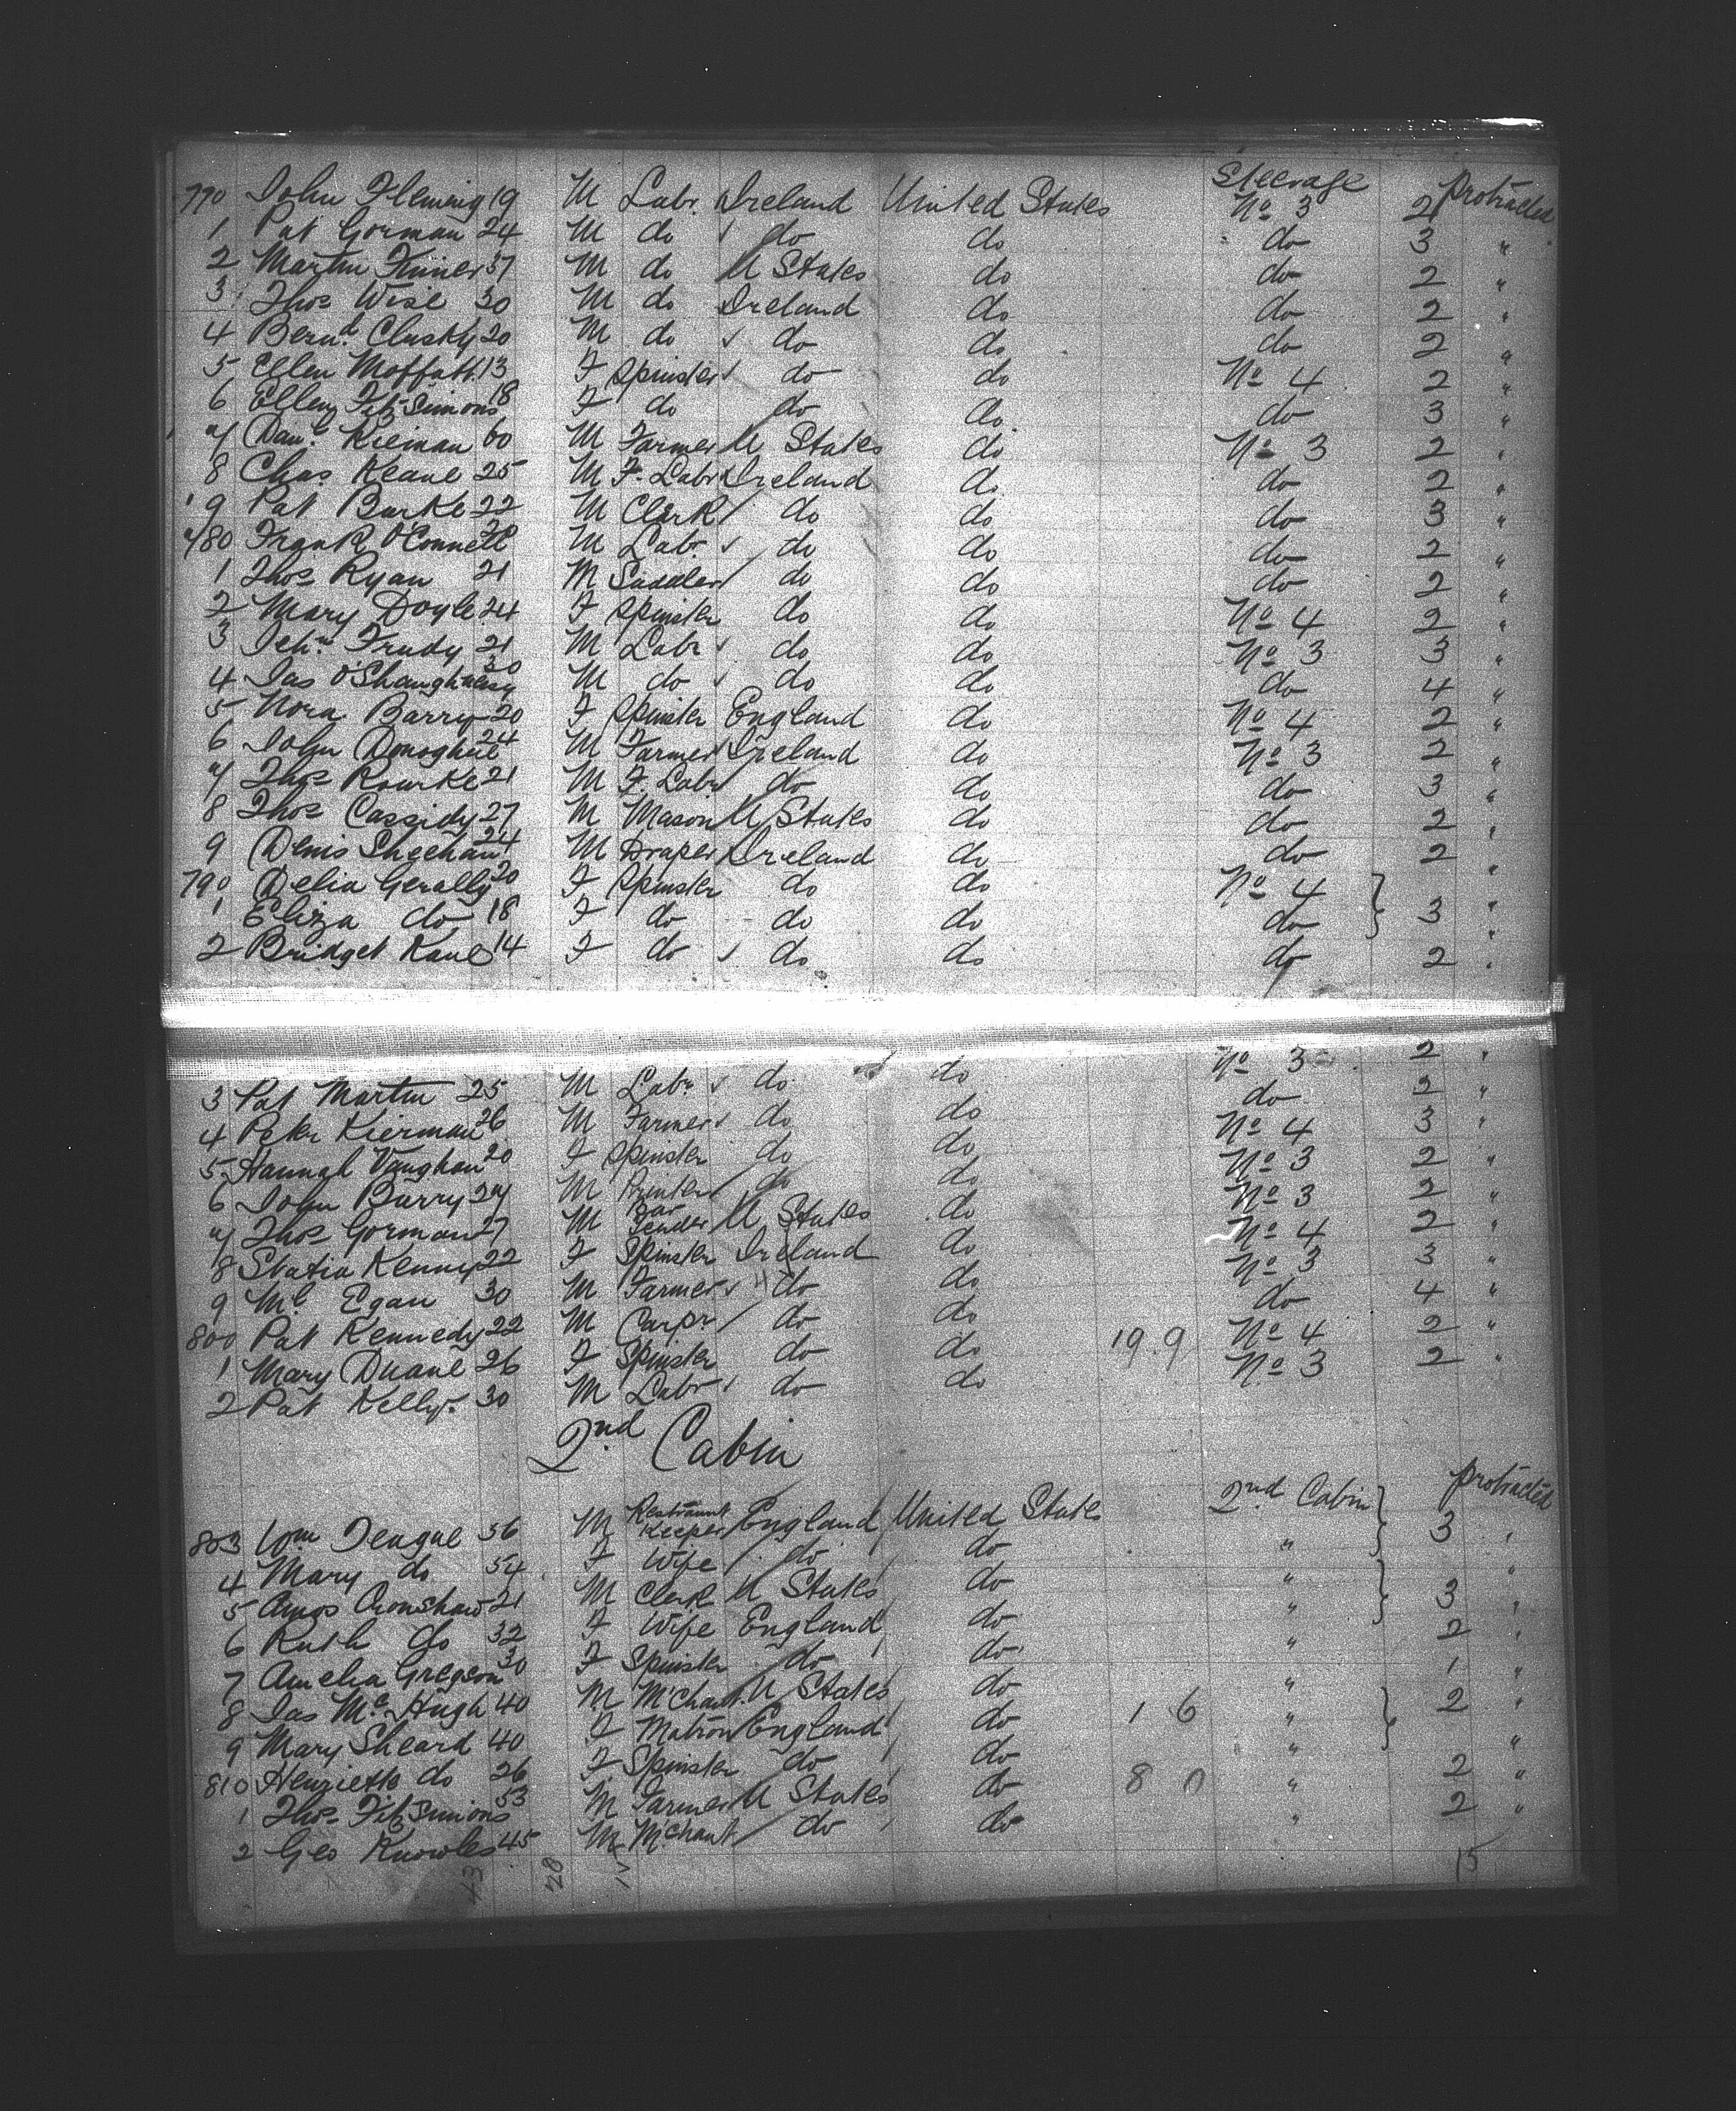 770 John Fleming 19 M Labr. Ireland United States Steerage No 3 2 Protracted
1 Pat Gorman 24 M do do do do 3 "
2 Martin 37 M do U States do do 2 "
3 Thos Wise 30 M do Ireland do do 2 "
4 Bernd. Clusky 20 M do do do do 2 "
5 Ellen Moffatt 13 F Spinster do do No 4 2 "
6 Ellen FitzSimons 18 F do do do do 3 "
7 Danl. Kieman 60 M Farmer U States do No 3 2 "
8 Chas Keane 25 M F. Labr Ireland do do 2 "
9 Pat Burke 22 M Clerk do do do 3 "
780 Frank O'Connell 20 M Labr. do do do 2 "
1 Thos Ryan 21 M Saddler do do do 2 "
2 Mary Doyle 24 F Spinster do do No 4 2 "
3 Frudy 21 M Labr do do No 3 3 "
4 Jas O'Shaughnessy 30 M do do do do 4 "
5 Nora Barry 20 F Spinster England do No 4 2 "
6 John Donoghue 24 M Farmer Ireland do No 3 2 "
7 Thos Rourke 21 M F. Labr do do do 3 "
8 Thos Cassidy 27 M Mason U States do do 2 "
9 Denis Sheehan 24 M Draper Ireland do do 2 "
790 Delia Gerally 20 F Spinster do do No 4 "
1 Eliza do 18 F do do do do 3 "
2 Bridget Kane 14 F do do do do 2 "
3 Pat Martin 25 M Labr. do do No 3 2 "
4 Peter Kierman 26 M Farmer do do do 2 "
5 Hannah Vaughan 20 F Spinster do do No 4 3 "
6 John Barry 24 M Printer do do No 3 2 "
7 Thos Gorman 27 M Bar Tender U States do No 3 2 "
8 Statia Kenny 22 F Spinster Ireland do No 4 2 "
9 Ml Egan 30 M Farmer do do No 3 3 "
800 Pat Kennedy 22 M Carpr do do do 4 "
1 Mary Duane 26 F Spinster do do 19.9 No 4 2 "
2 Pat Kelly 30 M Labr do do No 3 2 "
2nd Cabin
803 Wm Teague 56 M Restraunt Keeper England United States 2nd Cabin 3 Protracted
4 Mary do 54 F Wife do do " "
5 Amos Cronshaw 21 M Clerk U States do " 3 "
6 Ruth do 32 F Wife England do " "
7 Amelia Gregson 30 F Spinster do do " 2 "
8 Jas McHugh 40 M M'Chant. U States do " 1 "
9 Mary Sheard 40 F Matron England do 1 6 " 2 "
810 Henrietta do 26 F Spinster do do " "
1 Thos FitzSimons 53 M Farmer U States do 8 0 " 2 "
2 Geo Knowles 45 M M'Chant do do " 2 "
43 28 15